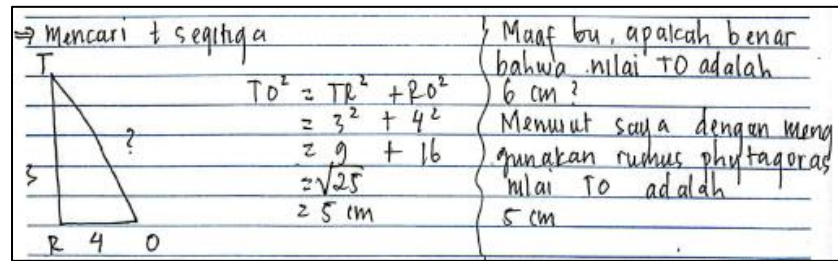 ⇒ Mencari t segitiga
T
3
?
R 4 O
TO² = TR² + RO²
= 3² + 4²
= 9 + 16
= √25
= 5 cm
Maaf bu, apakah benar
bahwa nilai TO adalah
6 cm?
Menurut saya dengan meng
gunakan rumus phytagoras
nilai TO adalah
5 cm